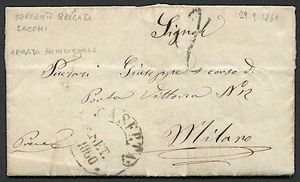 SERGENTE BRIGATA
SACCHI
29.9.1860
ARMATA MERIDIONALE
2
Signor
Giuseppe corso di
Porta Vittoria N° 12
Milano
CASERTA
SET.
1860